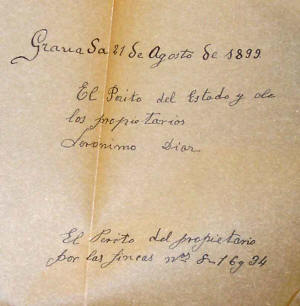 Granada 21 de Agosto de 1899
El Perito del Estado y de
los propietarios
Jeronimo Diaz
El Perito del propietario
por las fincas nos 8-16 y 34